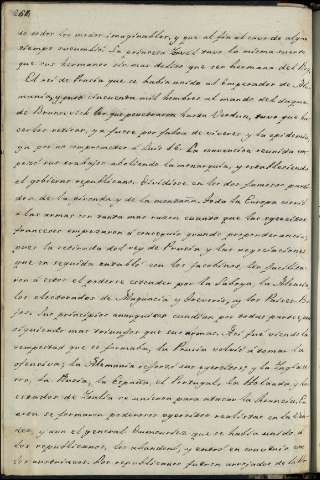 de todos los medios imaginables, y que al fin al cavo de algun
tiempo sucumbió. La princesa Isavel tuvo la misma suerte
que sus hermanos sin mas delito que ser hermana del Rei.
El rei de Prusia que se había unido al Emperador de Ale
mania, y puso cincuenta mil hombres al mando del duque
de Brunswich los que penetraron hasta Verdun, tuvo que ha
cerlos retirar, ya fuese por faltas de viveres y la epidemia,
ya por no comprometer á Luis 16. La convencion reunida em
pezó sus trabajos aboliendo la monarquía, y estableciendo
el gobierno republicano. Dividiose en los dos famosos parti
dos, de la gironda y de la montaña. Toda la Europa corrió
a las armas con tanta mas razon cuanto que los egercitos
franceses empezaron á conseguir grande preponderancia,
pues la retirada del rey de Prusia y las negociaciones
que en seguida entabló con los jacobinos, les facilita
ron á estos el poderse estender por la Saboya, la Alsacia
los electorados de Maguncia y Treveris, y los Paises Ba
jos. Sus principios anarquicos cundian por todas partes, con
siguiendo mas triunfos que sus armas. Asi fué viendo la
tempestad que se formaba, la Prusia volvió á tomar la
ofensiva; la Alemania reforzó sus egercitos; y la Inglater
ra, la Rusia, la España, el Portugal, la Holanda, y los
estados de Italia se unieron para atacar la Francia. En
esta se formaron poderosos egercitos realistas en la Van
dea, y aun el general Dumouriez que se había unido á
los republicanos, los abandonó, y entró en convenio con
los austriacos. Los republicanos fueron arrojados de la